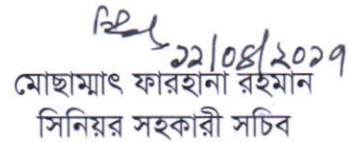 ২২/০৪/২০১৭
মোছাম্মাৎ ফারহানা রহমান
সিনিয়র সহকারী সচিব